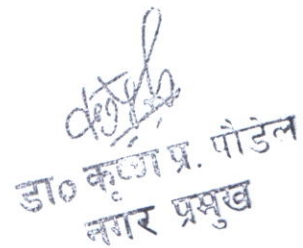 डा० कृष्ण प्र. पौडेल
नगर प्रमुख